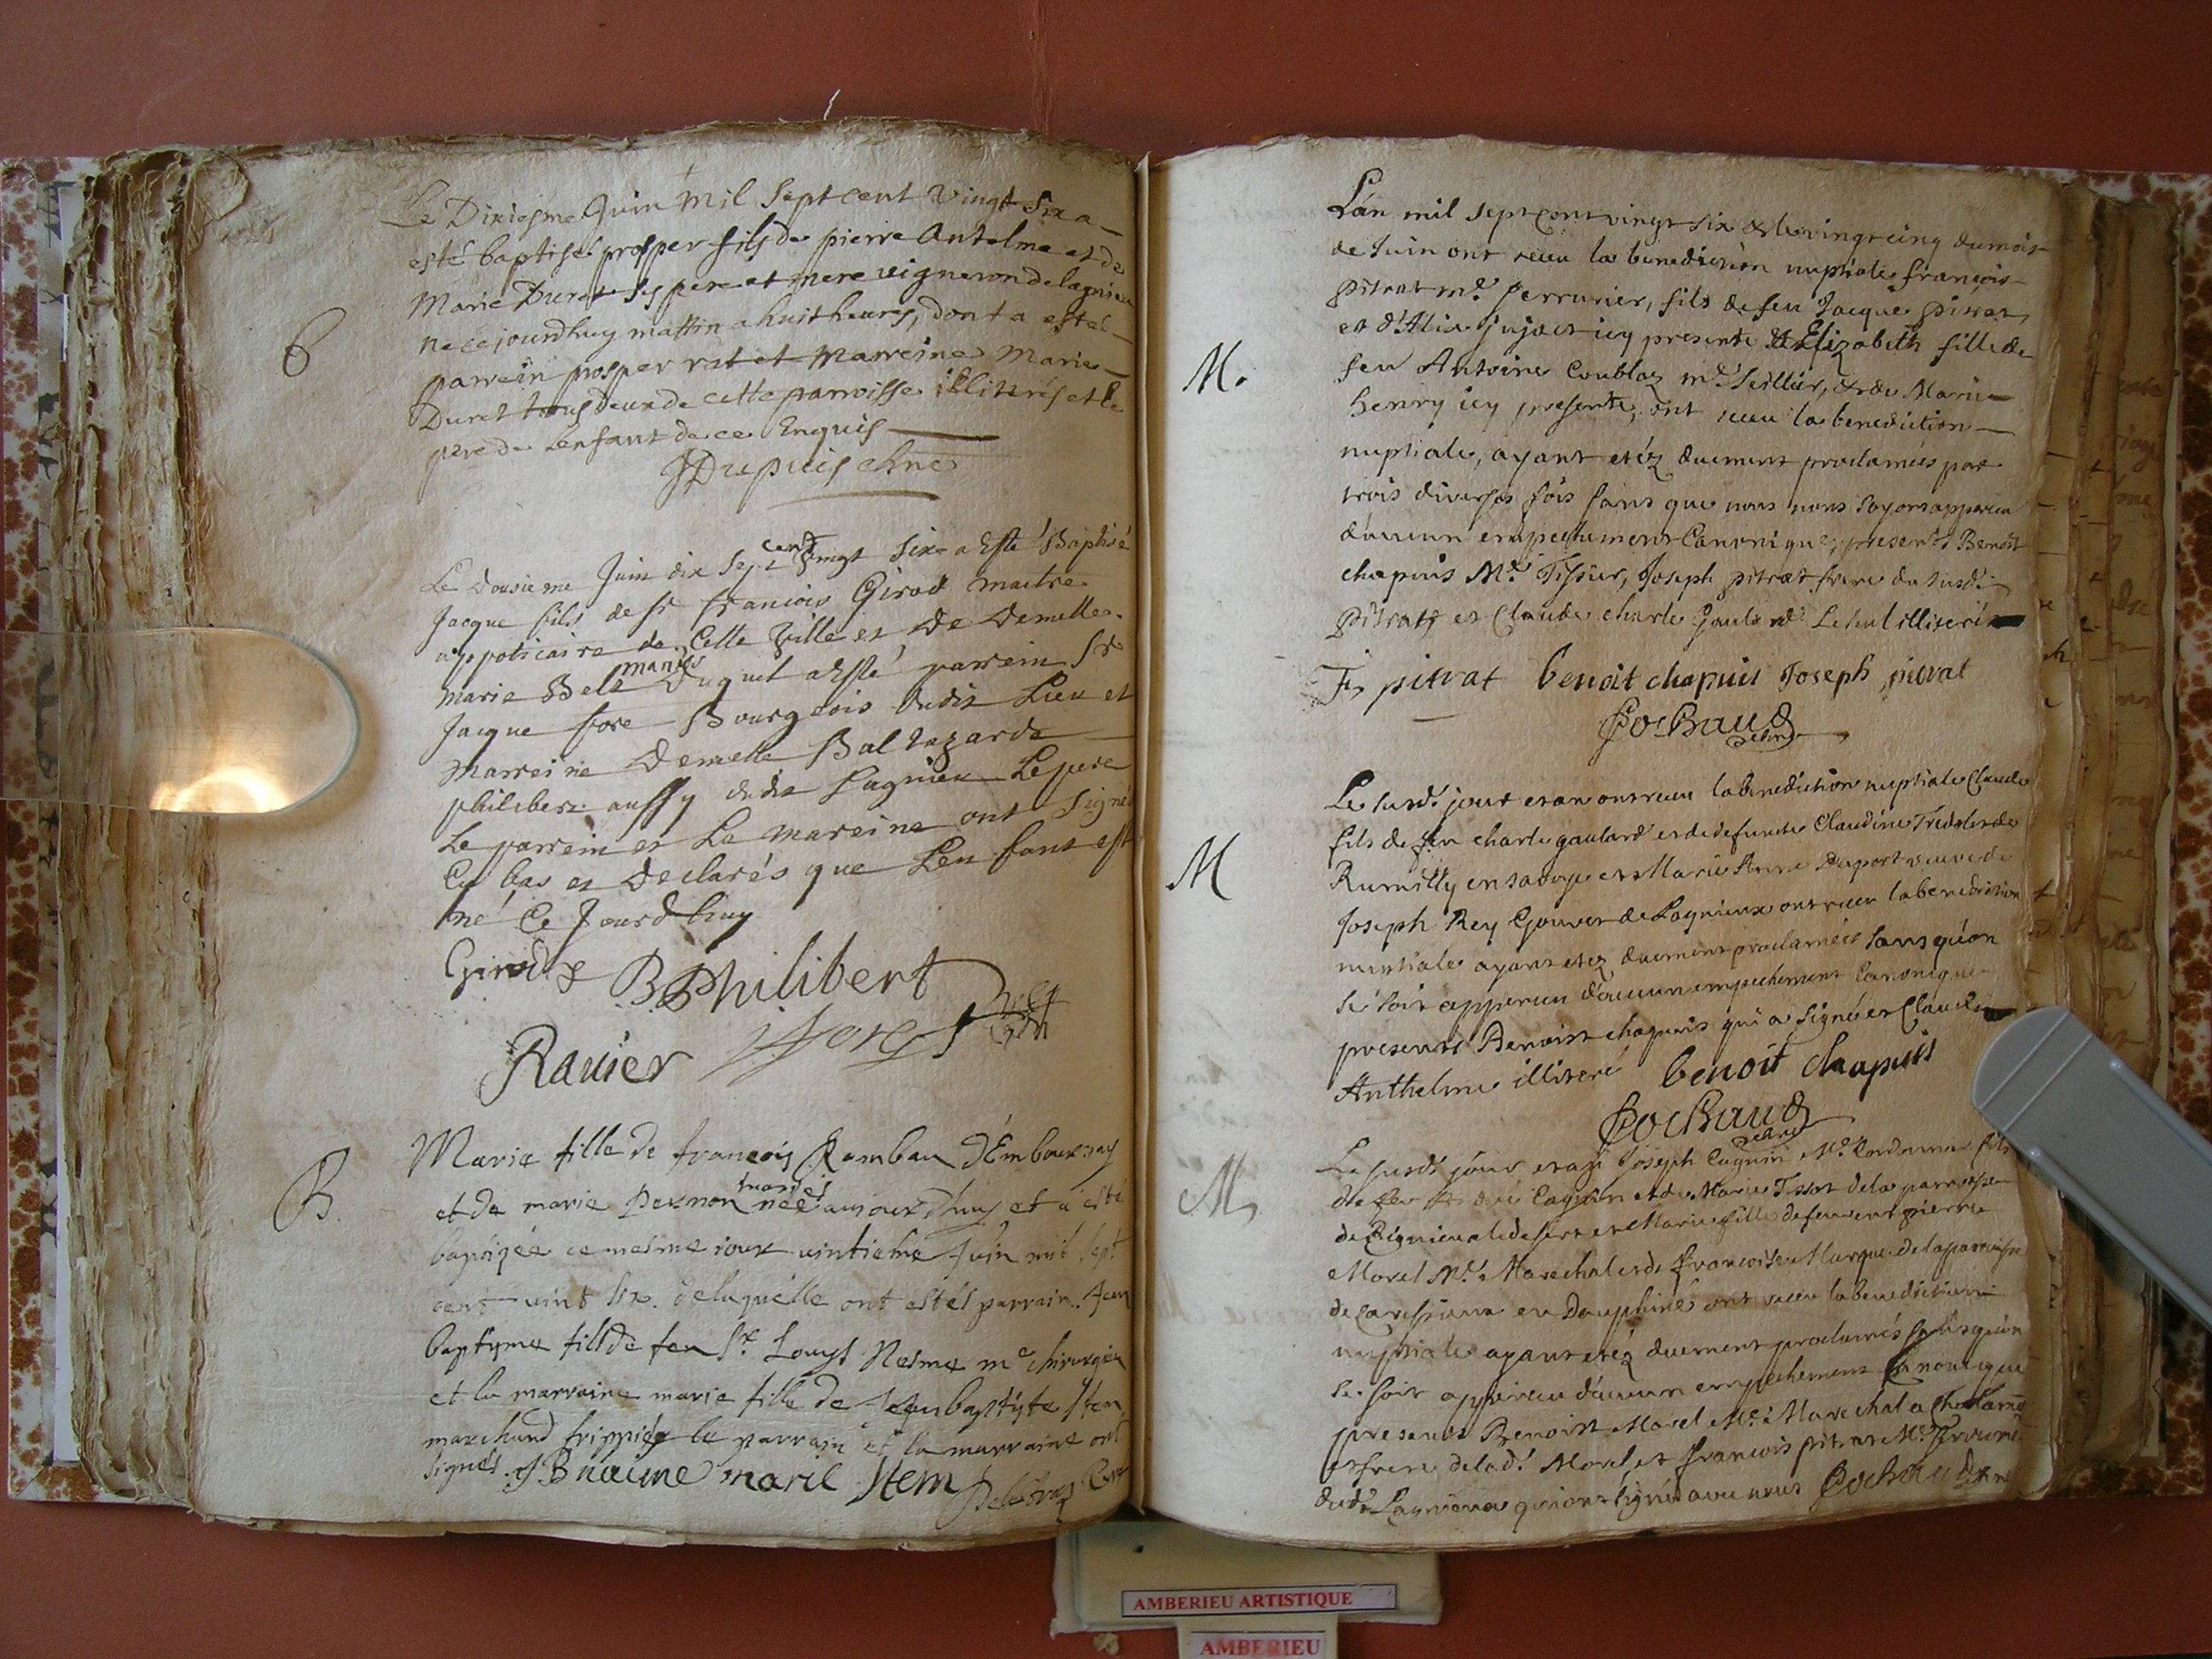 Le Dixiesme Juin mil sept cent vingt six a
esté baptisé prosper fils de pierre Antelme et de
Marie Duret ses pere et mere vigneron de lagnieu
B
ne ce jourdhuy mattin a huit heures, dont a esté
parrein prosper rat et Marreine Marie
Duret tous deux de cette parroisse illiterés et le
pere de Lenfant de ce Enquis
JDupuis chne
Le dousieme Juin dix sept cent vingt six a Esté Baptisé
Jacque fils de sr francois Girod maitre
appoticaire de Cette ville et De Demelle
marie Belt mariés Duguet a Esté parrein Sr
Jacque fore Bourgeois dudit Lieu et
marreine Demelle Baltazarde
philibert aussy dudit Lagnieu Le pere
Le parrein et La mareine ont signé
Cy bas et Declarés que Len fant est
né Ce Jourdhuy
Girod B Philibert
Ravier fore
B.
Marie fille de francois Rambau d'Embournay
et de marie Pernon mariés née aujourdhuy et a esté
baptizée ce mesme jour vintieme Juin mil sept
cent vint six. de laquelle ont estés parrain. Jean
baptyme fils de feu Sr. Louys Nesme me chirurgien
et la marraine marie fille de Jean baptyte Item
marchand frippier le parrain et la marraine ont
signés. J B naime marie Item
Lán mil sept cent vingt six & le vingt cinq du mois
de Juin ont receu la benediction nuptiale françois
pitrat me. serrurier, fils de feu Jacque pitrat
et d'Alix jujat icy presente & Elizabeth fille de
M.
feu Antoine Coublaz me. Seillier, & de Marie
henry icy presente, ont receu la benediction
nuptiale, ayant etéz duement proclameés par
trois diverses fois sans que nous nous soyons apperceu
d'aucun empechement Canonique, presents Benoit
chapuis Me. Tissier, Joseph pitrat frere du susdt.
pitrat et Claude charle Gaulard Le seul illiteré
Fs pitrat benoit chapuis Joseph pitrat
Pochaud
chne
Le susdt. jour et an ont receu la benediction nuptiale Claude
fils de feu charle gaulard et de defuncte Claudine
M
Rumilly en savoye et Marie Anne Duport veuve de
Joseph Rey Gouvet de Lagnieux ont receu la benediction
nuptiale ayant etez duement proclamées sans qu'on
se soit apperceu d'aucun empechement Canonique
presents Benoist chapuis qui a signé et Claude
Anthelme illiteré benoit chapuis
Pochaud
chne
Le susdt jour et an Joseph Cagnin Me. Cordonnier fils
M
de feu Cagnin et de Marie Tissot de la parroisse
de Rignieu le desert et Marie fille de feu pierre
Morel Me. Marechal et de francoise Marque de la paroisse
de en Dauphiné ont receu la benediction
nuptiale ayant etéz duement proclamés sans qu'on
se soit apperceu d'aucun empechement Canonique
presents Benoist Morel Me. Marechal a
et frere de la dt. Morel, et francois pitrat Me. serrurier
dudt Lagnieux qui ont signé avec nous Pochaud chne
AMBERIEU ARTISTIQUE
AMBERIEU